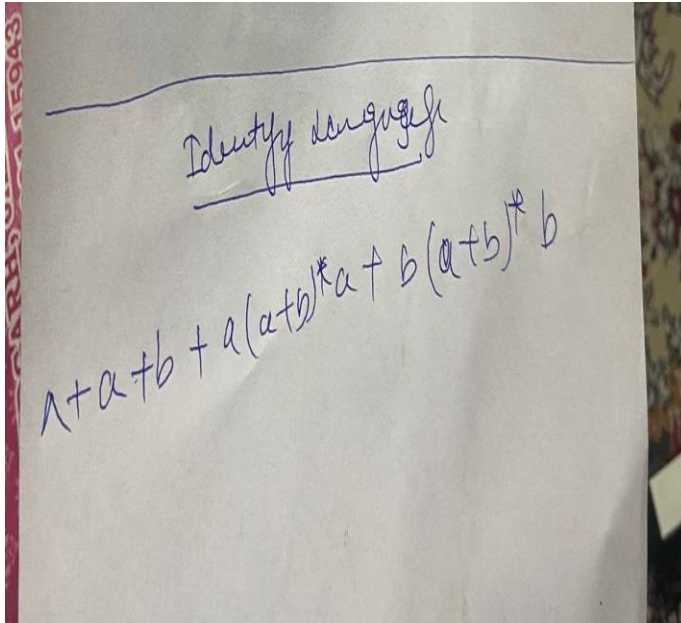 Identify Language
Λ+a+b+a(a+b)*a+b(a+b)*b